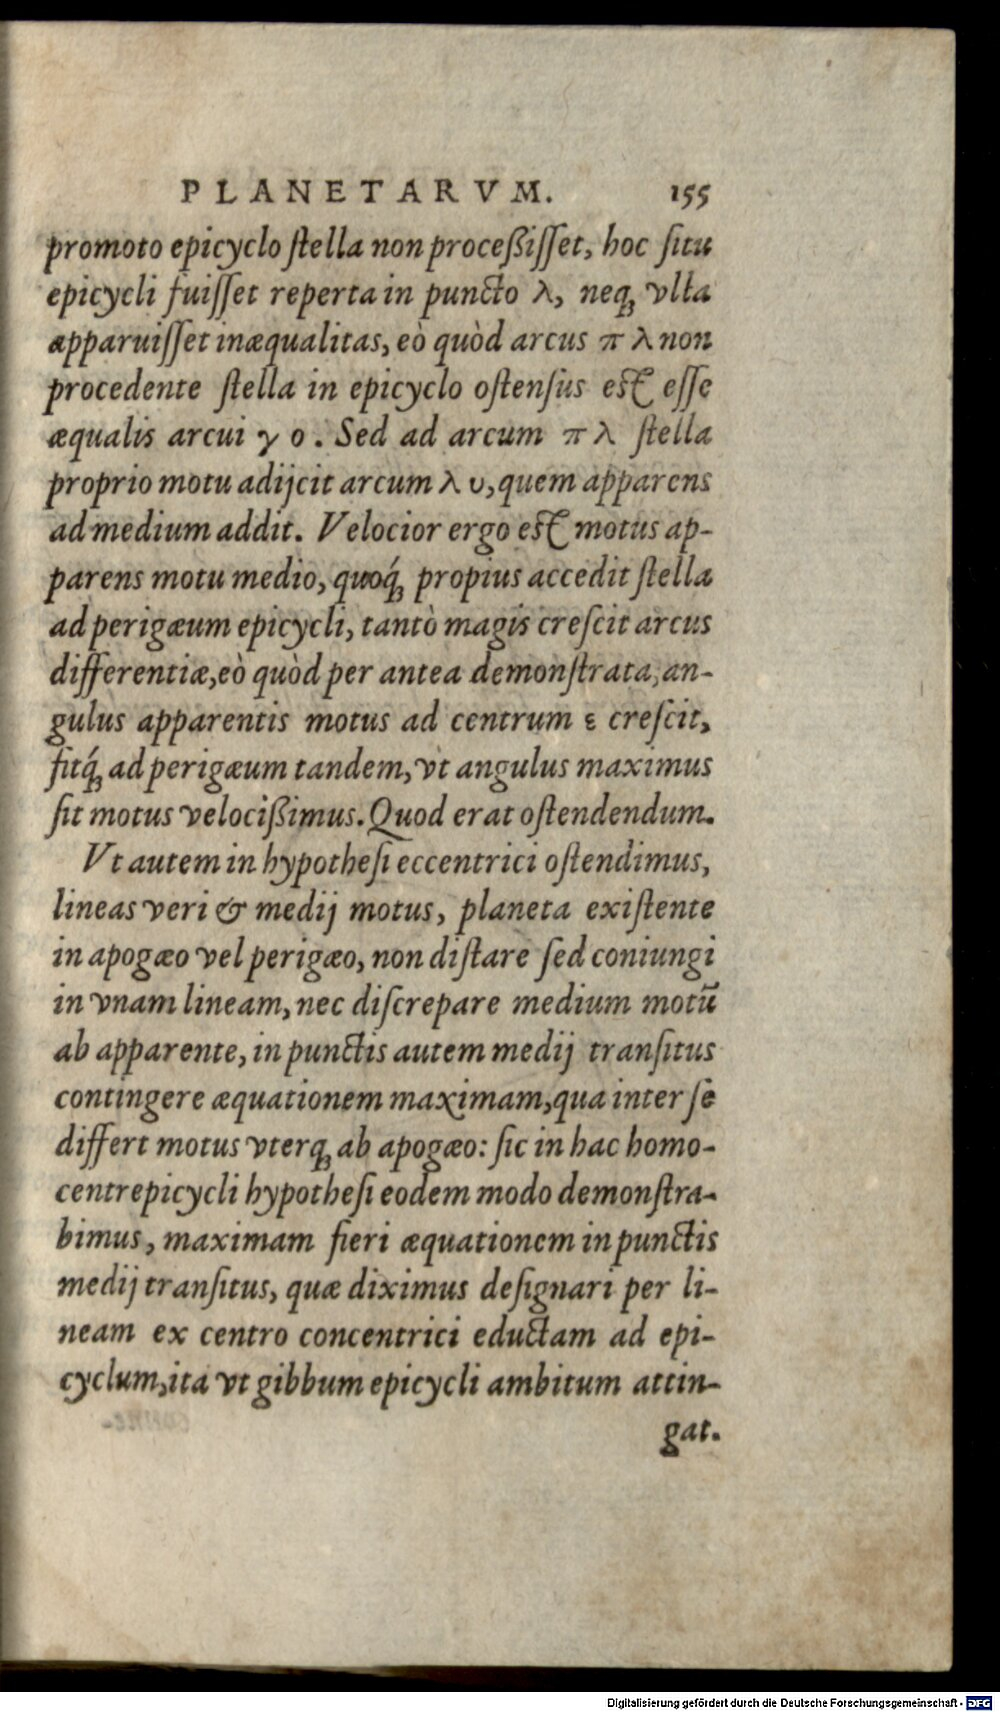 PLANETARVM. 155
promoto epicyclo ſtella non proceßiſſet, hoc ſitu
epicycli fuiſſet reperta in puncto λ, neq; vlla
apparuiſſet inæqualitas, eò quòd arcus π λ non
procedente ſtella in epicyclo oſtenſus eſt eſſe
æqualis arcui γ ο. Sed ad arcum π λ ſtella
proprio motu adijcit arcum λ υ, quem apparens
ad medium addit. Velocior ergo eſt motus ap-
parens motu medio, quoq́; propius accedit ſtella
ad perigæum epicycli, tantò magis creſcit arcus
differentiæ, eò quòd per antea demonſtrata, an-
gulus apparentis motus ad centrum ε creſcit,
fitq́; ad perigæum tandem, vt angulus maximus
ſit motus velocißimus. Quod erat oſtendendum.
Vt autem in hypotheſi eccentrici oſtendimus,
lineas veri & medij motus, planeta exiſtente
in apogæo vel perigæo, non diſtare ſed coniungi
in vnam lineam, nec diſcrepare medium motū
ab apparente, in punctis autem medij tranſitus
contingere æquationem maximam, qua inter ſe
differt motus vterq; ab apogæo: ſic in hac homo-
centrepicycli hypotheſi eodem modo demonſtra-
bimus, maximam fieri æquationem in punctis
medij tranſitus, quæ diximus deſignari per li-
neam ex centro concentrici eductam ad epi-
cyclum, ita vt gibbum epicycli ambitum attin-
gat.
Digitalisierung gefördert durch die Deutsche Forschungsgemeinschaft - DFG